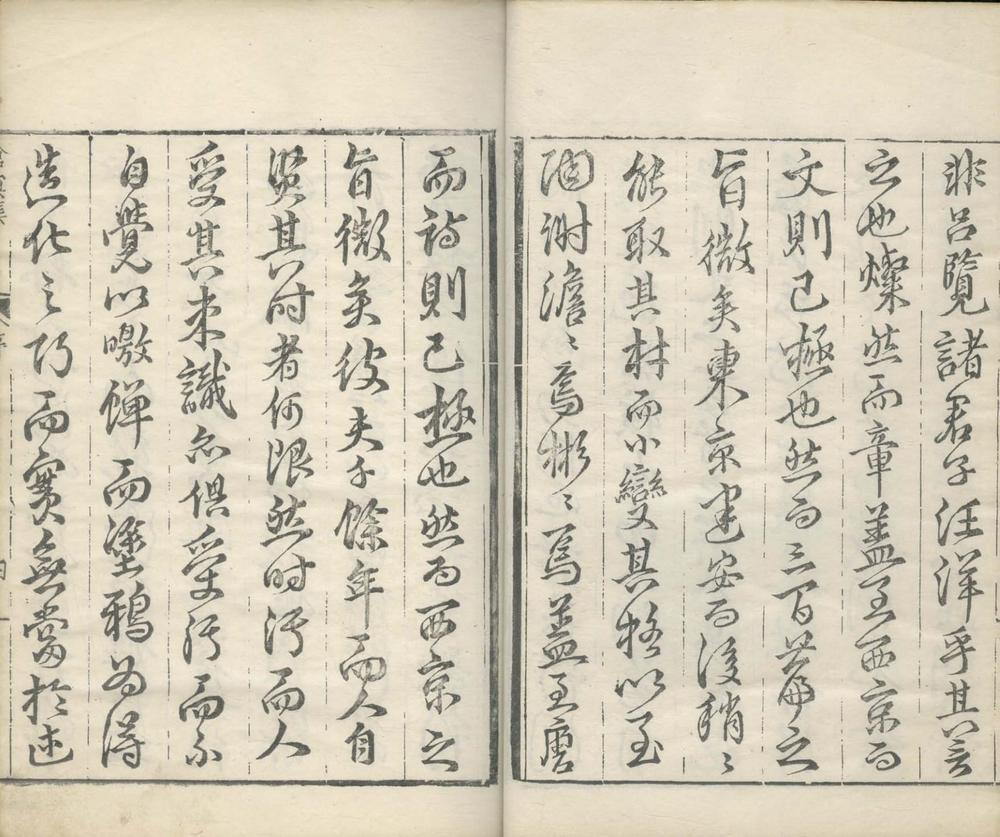 非呂覽諸君子汪洋乎其言
之也燦然而章蓋至西京而
文則已極也然而三百篇之
旨微矣東京建安而後稍〻
能取其材而小變其格以至
陶謝澹〻焉彬〻焉蓋至唐
而詩則已極也然而西京之
旨微矣彼夫千餘年而人自
賢其時者何限然時污而人
受其未識亦俱受污而不
自覺以噭蟬而塗鴉為得
造化之巧而實無當於述